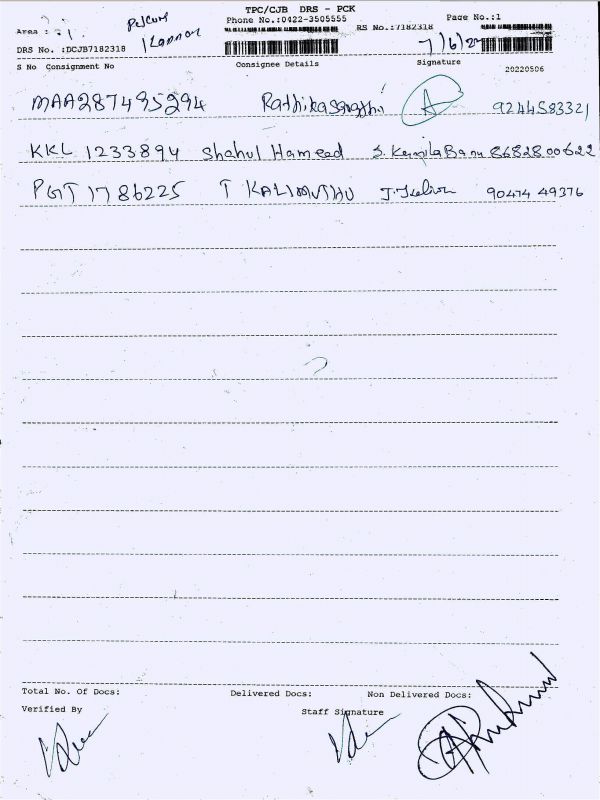 TPC/CJB DRS - PCK
Area : Phone No.:0422-3505555 RS No.:7182318 Page No.:1
DRS No. :DCJB7182318 7/6/24
S No Consignment No Consignee Details Signature 20220506
MAA287495294 Rathikasarathi A 9244583321
KKL 1233894 Shahul Hameed S. KamilaBanu 8682800622
PGT 1786225 T KALIMUTHU 90474 49376
Total No. Of Docs: Delivered Docs: Non Delivered Docs:
Verified By Staff Signature